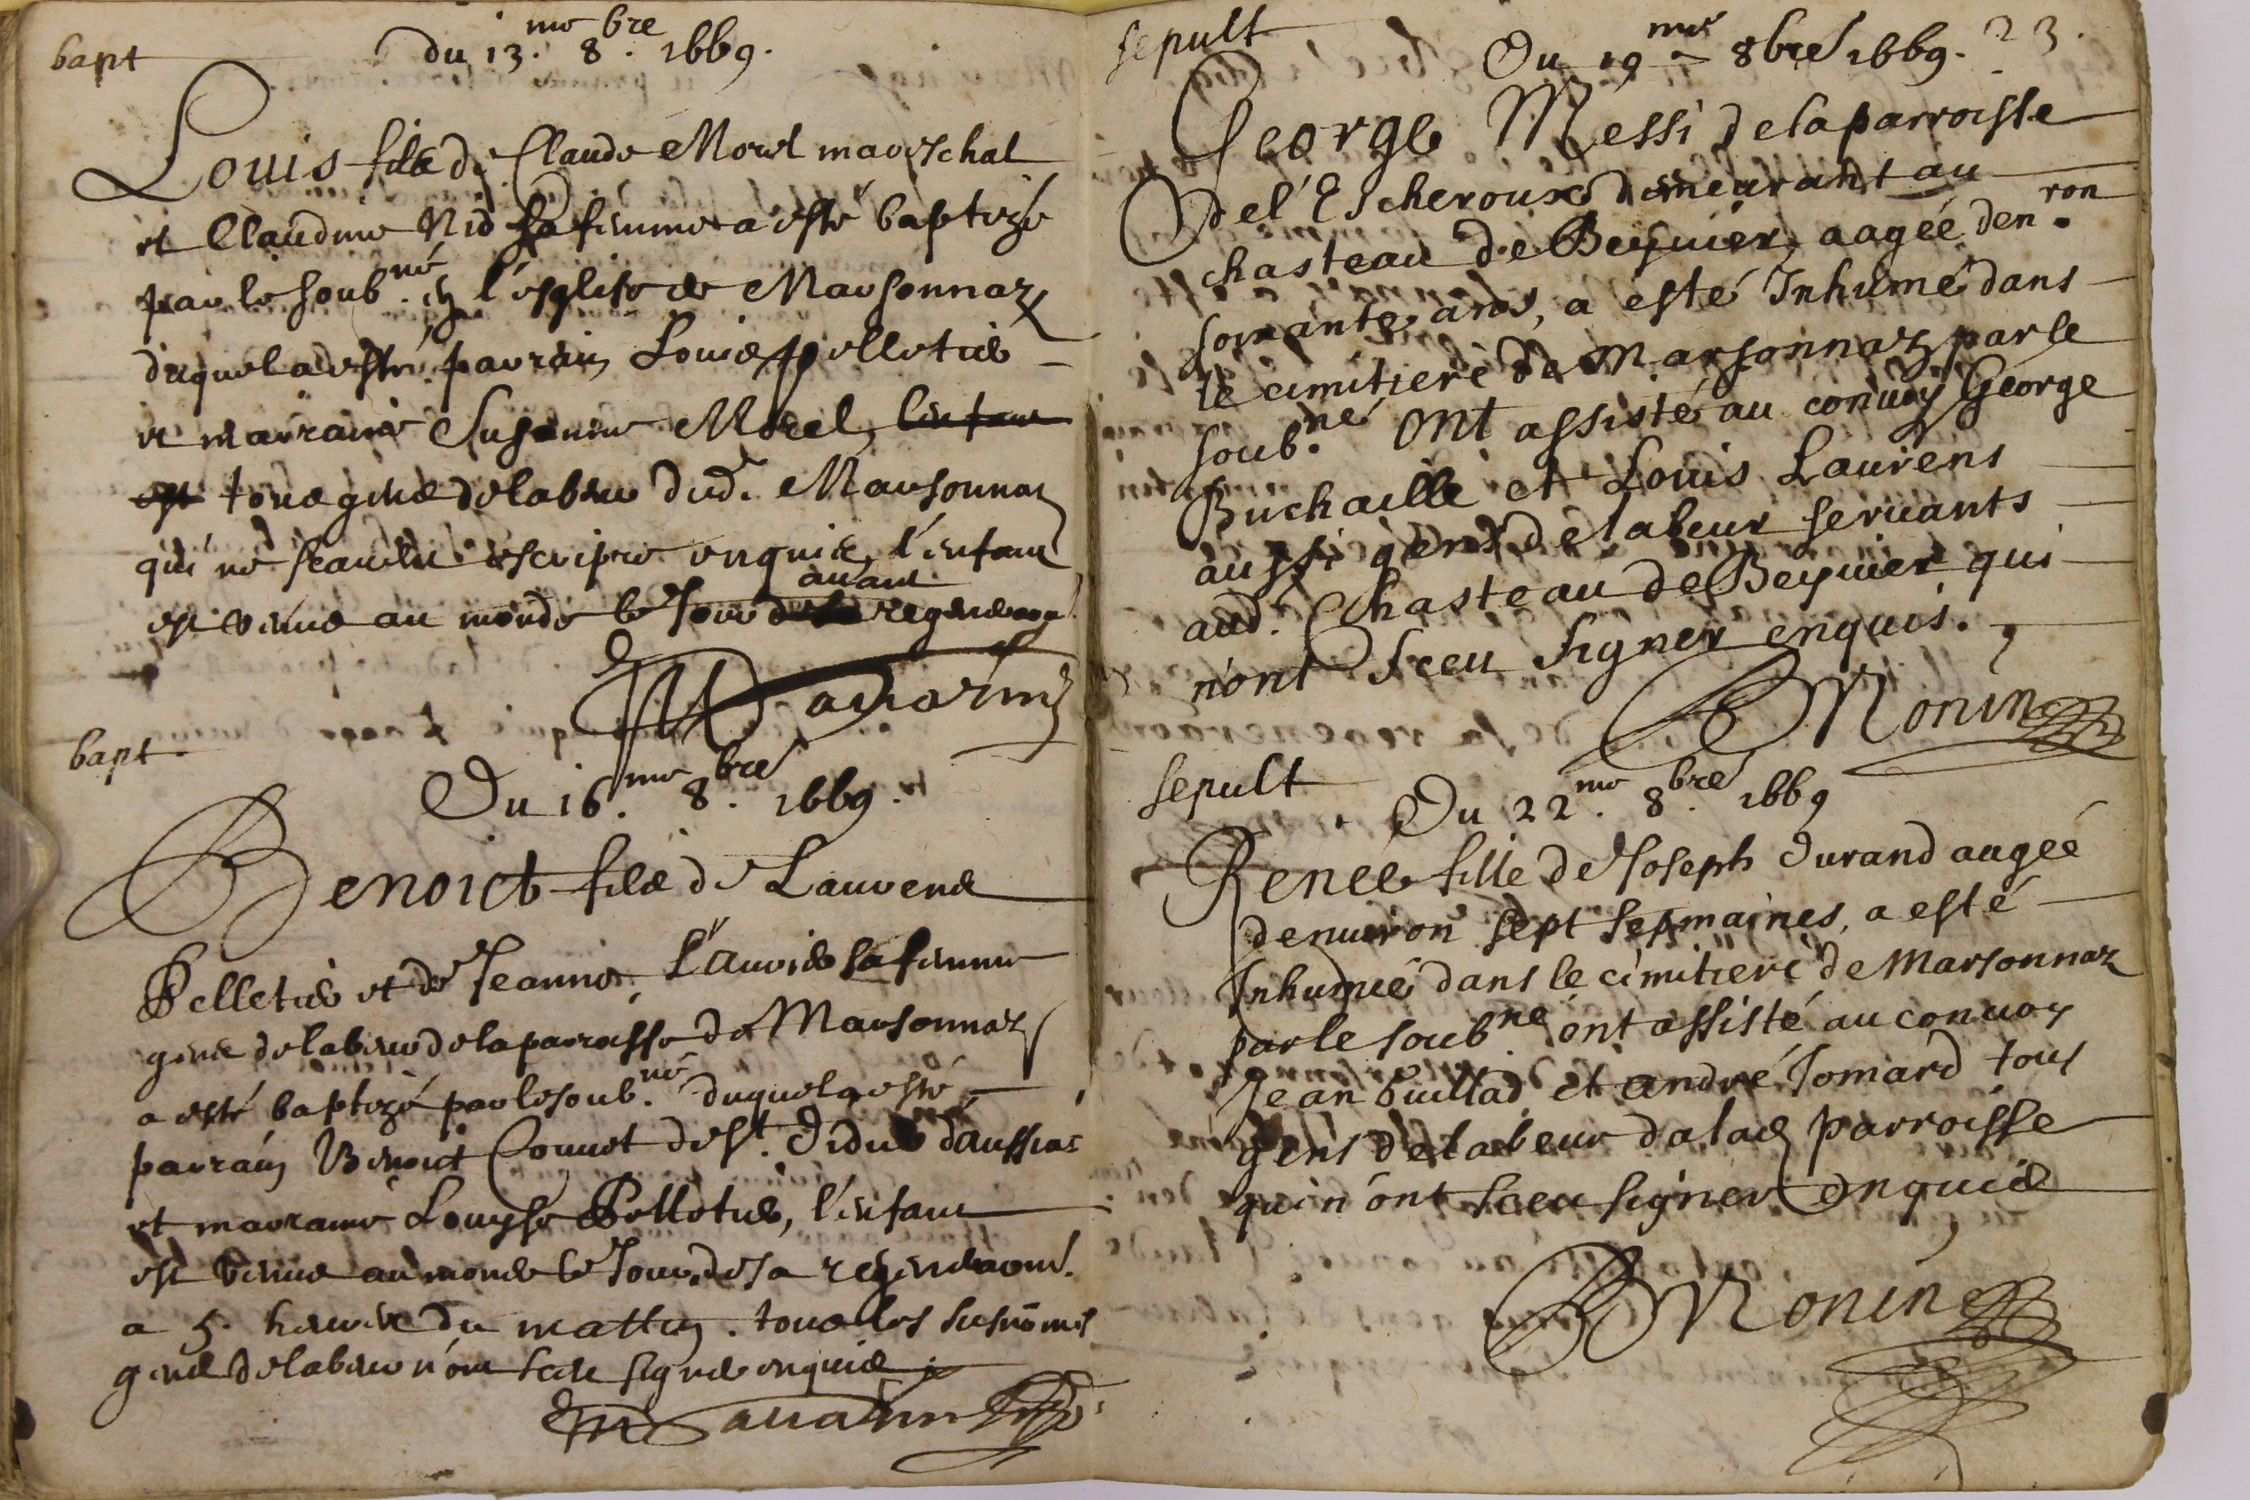 bapt
du 13.me 8.bre 1669.
Louis fils de Claude Morel mareschal
et Claudine Nid sa femme a esté baptizé
par le soub.né en l'esglise de Marsonnaz
duquel a esté parrain Louis Pelletier
et marraine Susanne Morel, l'enfant
est tous gens de labeur dud. Marsonnaz
qui ne scauent escripre enquis, l'enfant
est venus au monde le Jour auant
bapt.
Du 16.me 8.bre 1669.
Benoict fils de Laurens
Pelletier et de Jeanne sa femme
gens de labeur de la parroisse de Marsonnaz
a esté baptizé par le soub.né duquel a esté
parrain Benoict Connet de St. Didier d'aussiat
et marraine Louyse Pelletier, l'enfant
est venus au monde le Jour de sa regeneraon.
a 5. heures du mattin. tous les susnomés
gens de labeur n'ont sceu signer enquis
sepult
Du 19me 8bre 1669. 23.
George Messi de la parroisse
de l'Escheroux demeurant au
chasteau de Beyuier, aagée den.ron
soixante ans, a esté Inhumé dans
le cimitiere de Marsonnaz par le
soub.né ont assisté au conuoy George
Buchaille et Louis Laurens
aussi gens de labeur seruants
aud. Chasteau de Beyuier qui
n'ont sceu signer enquis.
Monin
sepult
Du 22.me 8.bre 1669
Renée fille de Joseph durand aagée
denuiron sept sepmaines, a esté
Inhumée dans le cimitiere de Marsonnaz
par le soub.né ont assisté au conuoy
Jean buillad et andré Jomard tous
gens de labeur de lad parroisse
qui n'ont sceu signer enquis
Monin